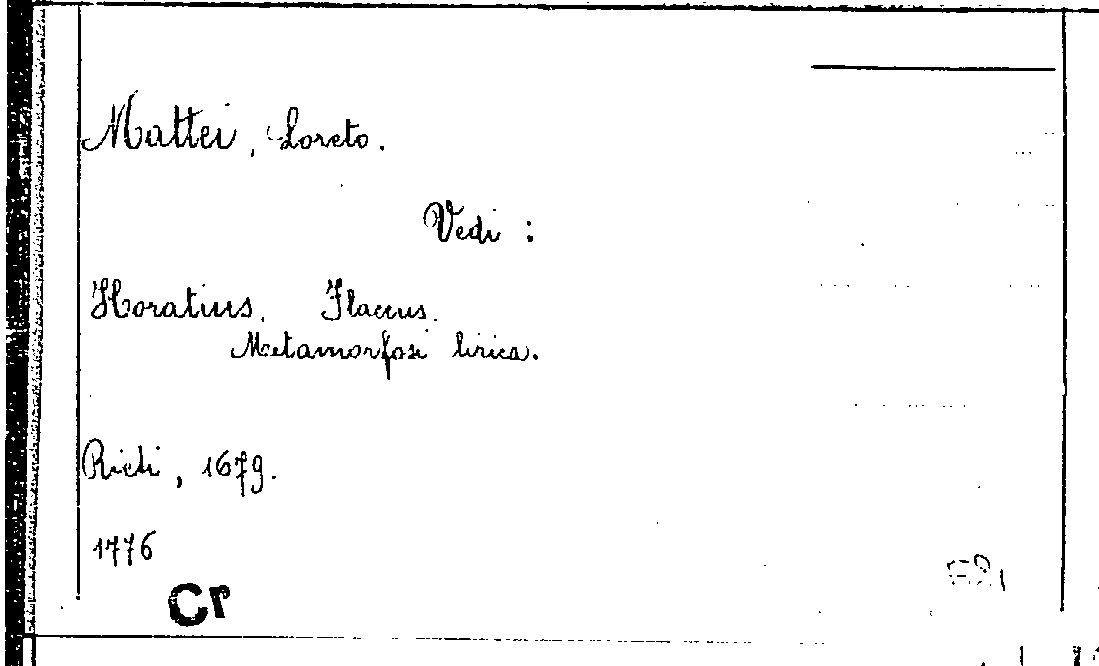 Mattei, Loreto.
Vedi :
Horatius, Flaccus.
Metamorfosi lirica.
Rieti, 1679.
1776
Cr